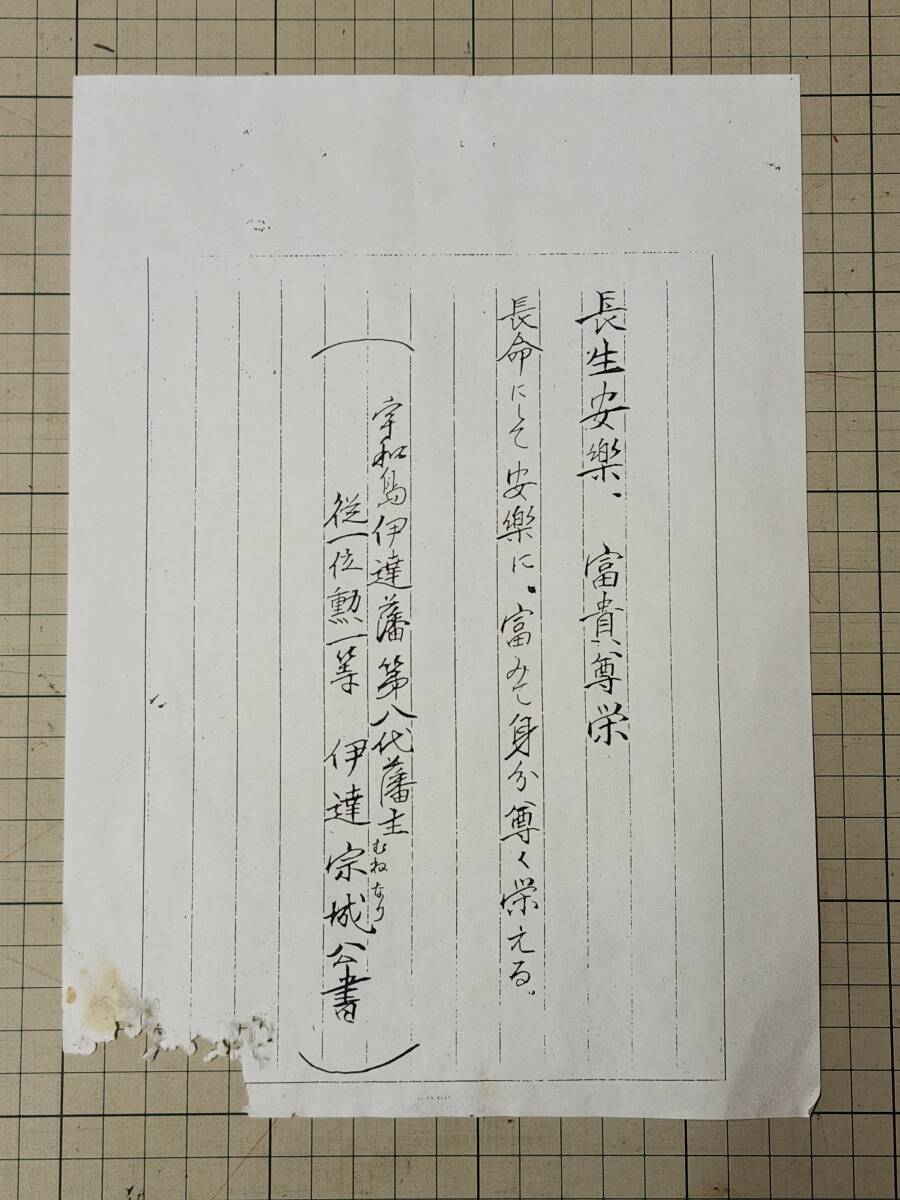 長生安樂、富貴尊栄
長命にして安樂に、富みて身分尊く栄える。
宇和島伊達藩第八代藩主
従一位勲一等 伊達宗城公書
むねなり